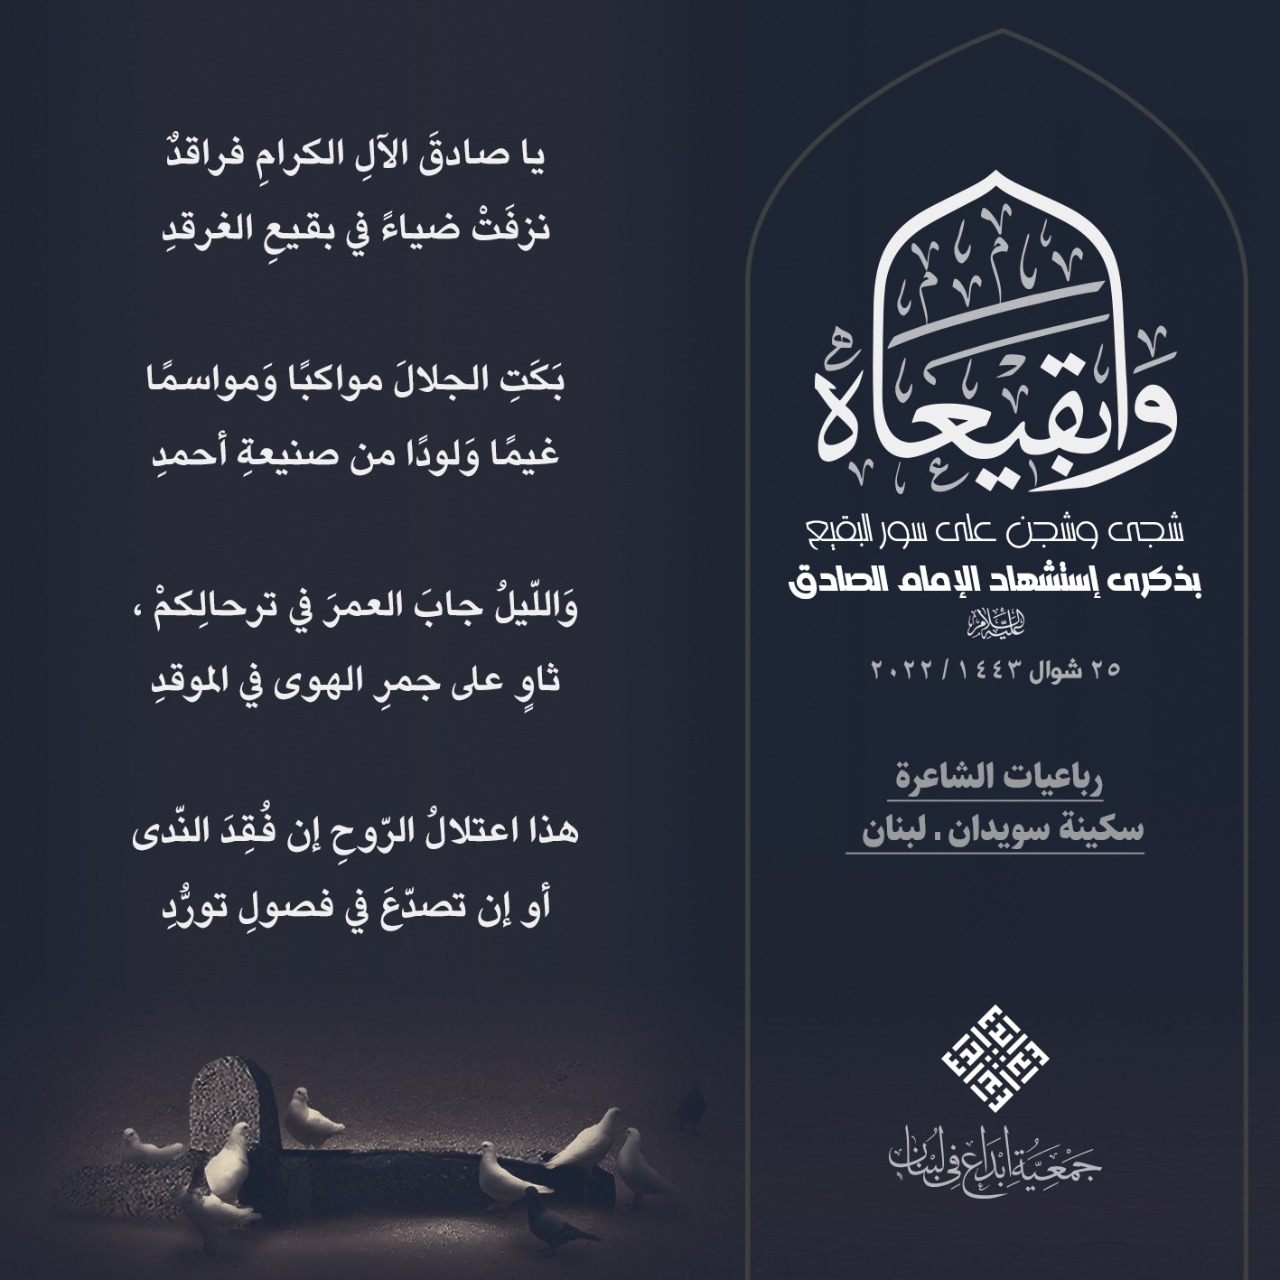 وابقيعاه
شجى وشجن على سور البقيع
بذكرى إستشهاد الإمام الصادق
عليه السلام
٢٥ شوال ١٤٤٣ / ٢٠٢٢
رباعيات الشاعرة
سكينة سويدان . لبنان
جَمْعِيَّة إبْدَاع فِي لُبْنَان
يا صادقَ الآلِ الكرامِ فراقدٌ
نزفَتْ ضياءً في بقيعِ الغرقدِ
بَكَتِ الجلالَ مواكبًا وَمواسمًا
غيمًا وَلودًا من صنيعةِ أحمدِ
وَاللّيلُ جابَ العمرَ في ترحالِكمْ ،
ثاوٍ على جمرِ الهوى في الموقدِ
هذا اعتلالُ الرّوحِ إن فُقِدَ النّدى
أو إن تصدّعَ في فصولِ تورُّدِ